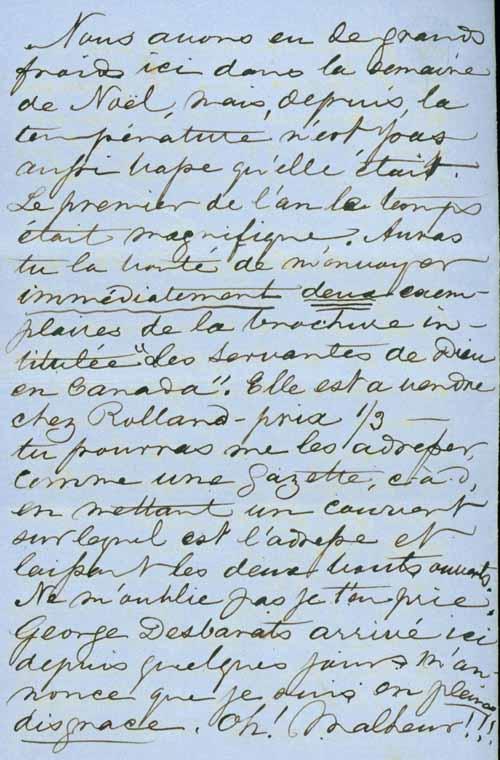 Nous avons eu de grands
froids ici dans la semaine
de Noël, mais, depuis, la
température n'est pas
aussi basse qu'elle était.
Le premier de l'an le temps
était magnifique. Auras
tu la bonté de m'envoyer
immédiatement deux exem-
plaires de la brochure in-
titulée "les Servantes de Dieu
en Canada". Elle est a vendre
chez Rolland - prix 1/3 —
tu pourras me les adresser,
comme une Gazette, c.à.d,
en mettant un couvert
sur lequel est l'adresse et
laissant les deux bouts ouverts.
Ne m'oublie pas je t'en prie.
George Desbarats arrivé ici
depuis quelques jours m'an-
nonce que je suis en pleine
disgrace. Oh! Malheur!!!